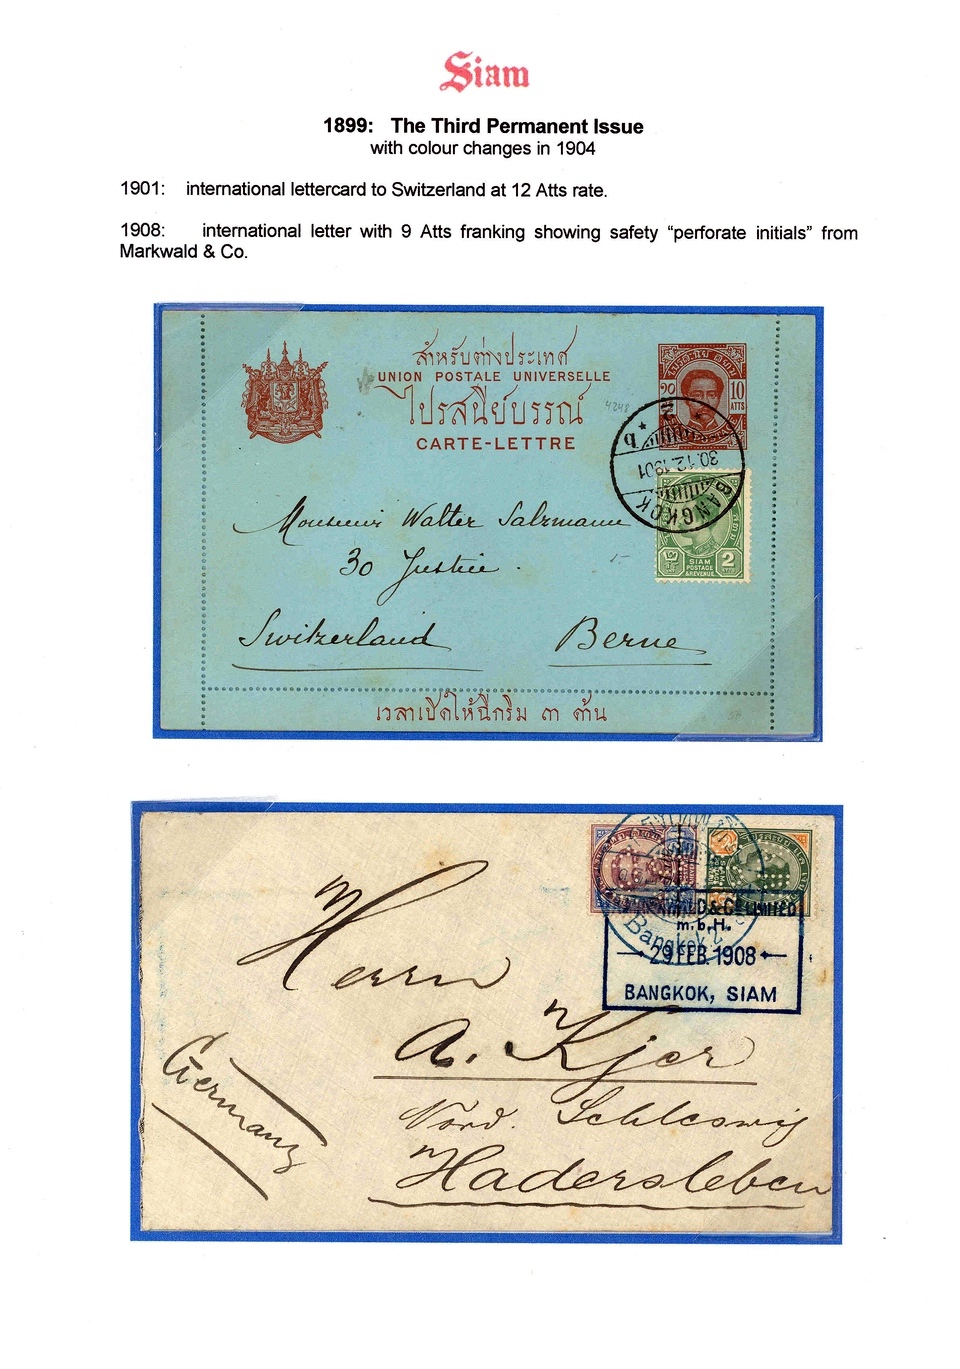 Siam
1899: The Third Permanent Issue
with colour changes in 1904
1901: international lettercard to Switzerland at 12 Atts rate.
1908: international letter with 9 Atts franking showing safety “perforate initials” from
Markwald & Co.
สำหรับต่างประเทศ
UNION POSTALE UNIVERSELLE
ไปรสนียบรรณ์
CARTE-LETTRE
10
ATTS
4248
2
b
30.12.1901
BANGKOK
SIAM
POSTAGE
&REVENUE
2
ATTS
Monsieur Walter Salzmann
30 Justice
Switzerland Berne
เวลาเปิดให้ฉีกริม ๓ ด้าน
Bangkok 2
& Co LIMITED
m.b.H.
29 FEB. 1908
BANGKOK, SIAM
Herrn
A. Kjer
Germany
Nord. Schleswig
Hadersleben